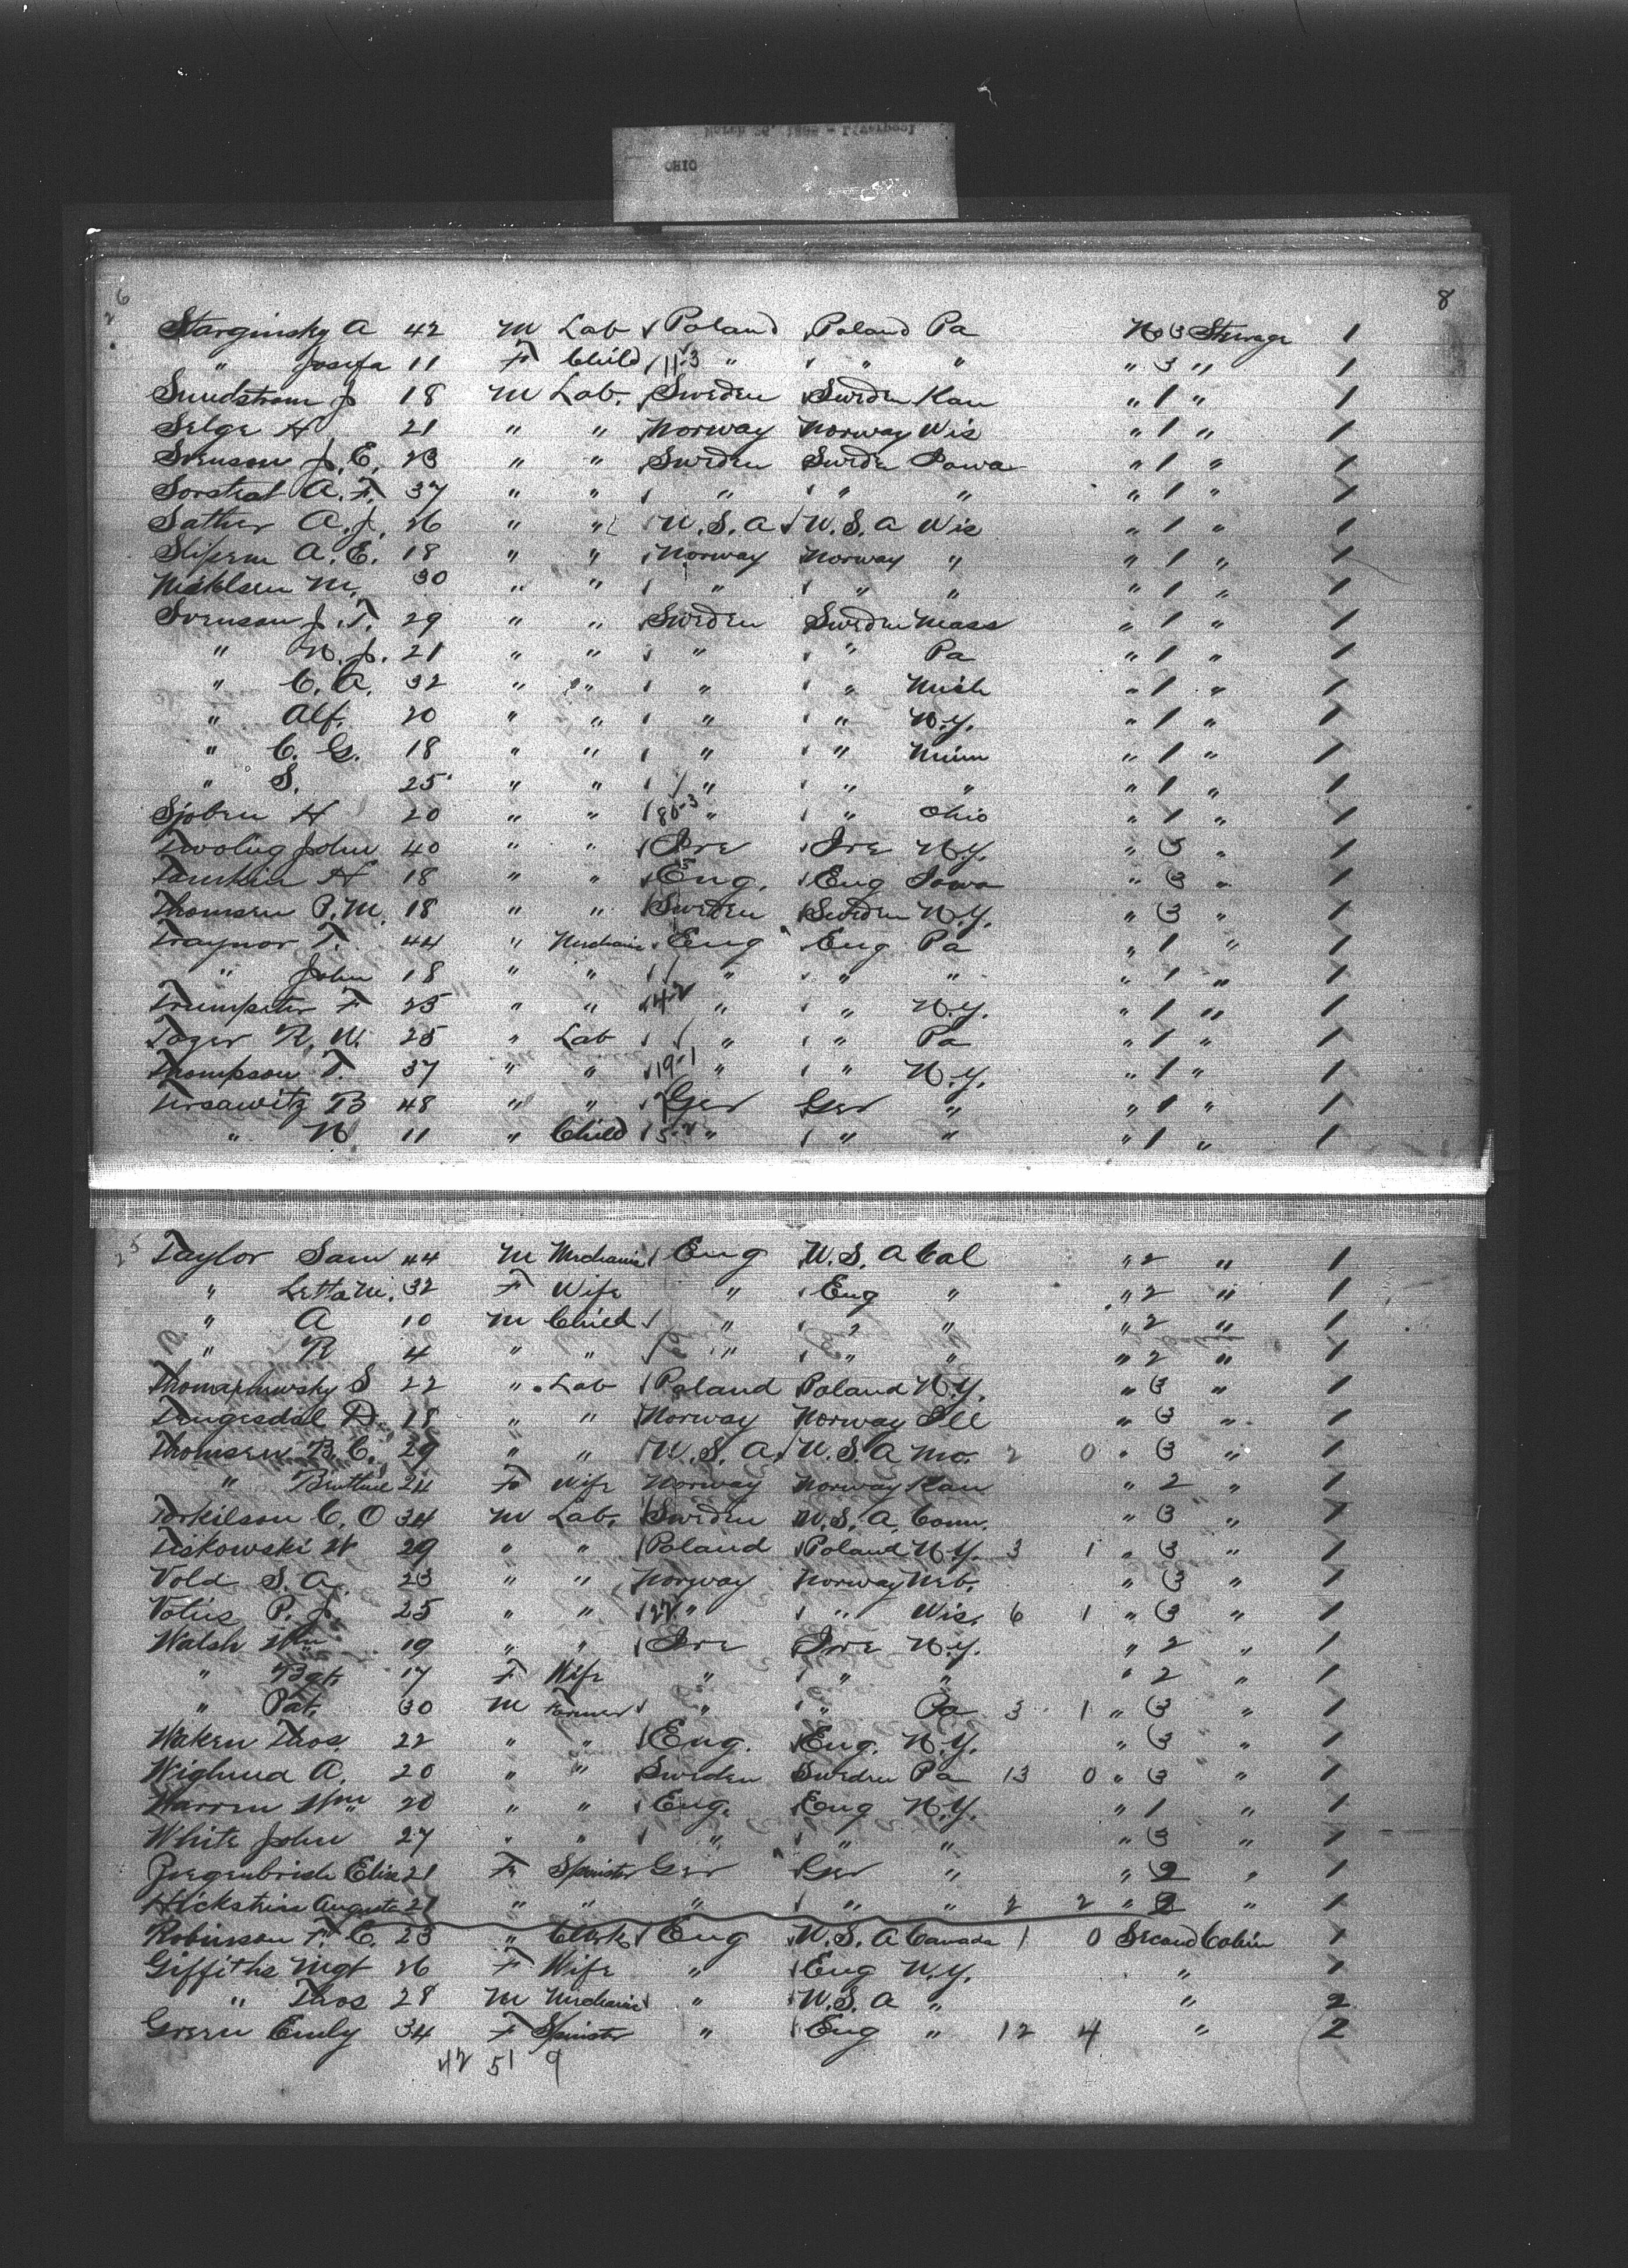 March 26, 1894 - Liverpool
OHIO
6 8
Starginsky A 42 M Lab Poland Poland Pa No 3 Steerage 1
" Josefa 11 F Child 11-3 " " " " 3 " 1
Sundstrom J 18 M Lab. Sweden Sweden Kan " 1 " 1
Selge H 21 " " Norway Norway Wis " 1 " 1
Svenson J. E. 23 " " Sweden Sweden Iowa " 1 " 1
A. F. 37 " " " " " " 1 " 1
Sather A. J. 26 " " U.S.A U.S.A Wis " 1 " 1
A. E. 18 " " Norway Norway " " 1 " 1
M. 30 " " " " " " 1 " 1
Svenson J. T. 29 " " Sweden Sweden Mass " 1 " 1
" N. J. 21 " " " " Pa " 1 " 1
" C. A. 32 " " " " Mich " 1 " 1
" Alf. 20 " " " " N.Y. " 1 " 1
" C. G. 18 " " " " Minn " 1 " 1
" S. 25 " " " " " " 1 " 1
H 20 " " 80-3 " " Ohio " 1 " 1
John 40 " " Ire Ire N.Y. " 3 " 1
H 18 " " Eng. Eng Iowa " 3 " 1
Thomsen P. M. 18 " " Sweden Sweden N.Y. " 3 " 1
Traynor T. 44 " Mechanic Eng Eng Pa " 1 " 1
" John 18 " " " " " " 1 " 1
Trumpeter F 25 " " 4-2 " " N.Y. " 1 " 1
R. W. 25 " Lab " " Pa " 1 " 1
Thompson T. 37 " " 19-1 " " N.Y. " 1 " 1
Tersawitz B 48 " " Ger Ger " " 1 " 1
" N 11 " Child 5-2 " " " " 1 " 1
25 Taylor Sam 44 M Mechanic Eng U.S.A Cal " 2 " 1
" Letta M. 32 F Wife " Eng " " 2 " 1
" A 10 M Child " " " " 2 " 1
" R 4 " " " " " " 2 " 1
S 22 " Lab Poland Poland N.Y. " 3 " 1
Tengesdal D. 18 " " Norway Norway Ill " 3 " 1
Thomsen B. C. 29 " " U.S.A. U.S.A Mo. 2 0 " 3 " 1
" 24 F Wife Norway Norway Kan " 2 " 1
Torkilson C. O 34 M Lab. Sweden U.S.A. Conn. " 3 " 1
Tiskowski W 29 " " Poland Poland N.Y. 3 1 " 3 " 1
Vold S. A. 23 " " Norway Norway Neb. " 3 " 1
P. J. 25 " " 22 " " Wis. 6 1 " 3 " 1
Walsh Wm 19 " " Ire Ire N.Y. " 2 " 1
" 17 F Wife " " " " 2 " 1
" Pat. 30 M Farmer " " Pa 3 1 " 3 " 1
Waken Thos. 22 " " Eng. Eng. N.Y. " 3 " 1
A. 20 " " Sweden Sweden Pa 13 0 " 3 " 1
Warren Wm 20 " " Eng. Eng N.Y. " 1 " 1
White John 27 " " " " " " 3 " 1
21 F Spinster Ger Ger " " 2 " 1
Augusta 21 " " " " " 2 2 " 2 " 1
Robinson F. C. 23 " Clerk Eng U.S.A Canada 1 0 Second Cabin 1
Giffiths Mgt 26 F Wife " Eng N.Y. " 1
" Thos 28 M Mechanic " U.S.A " " 2
Green Emily 34 F Spinster " Eng " 12 4 " 2
42 51 9